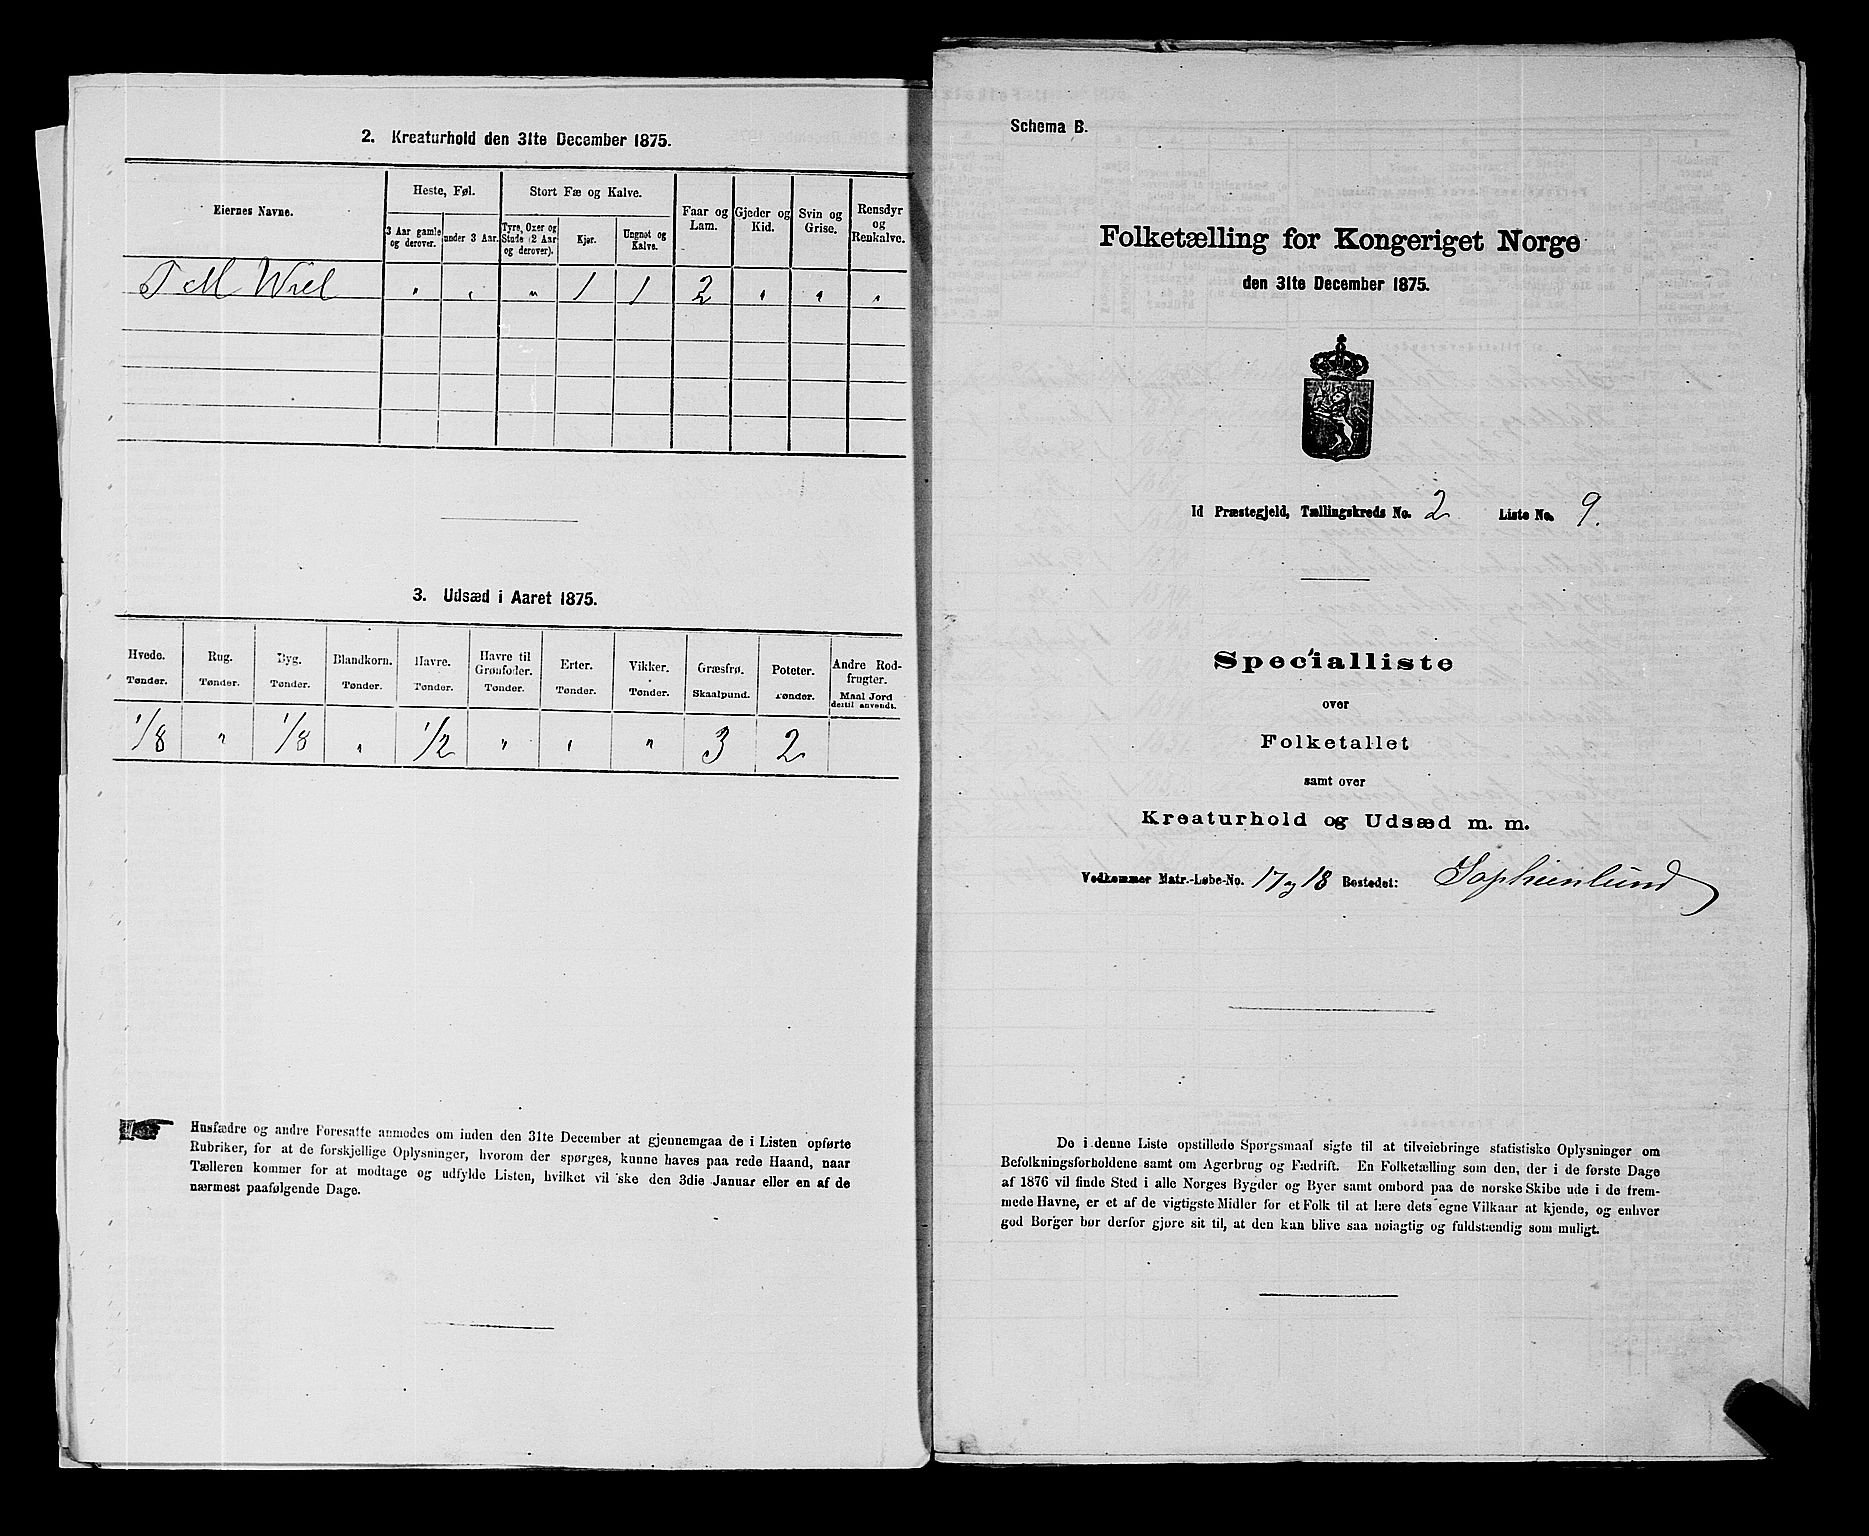 2. Kreaturhold den 31te December 1875.
Eiernes Navne.
Heste, Føl.
Stort Fæ og Kalve.
Faar og Lam.
Gjeder og Kid.
Svin og Grise.
Rensdyr og Renkalve.
3 Aar gamle og derover.
under 3 Aar.
Tyre, Oxer og Stude (2 Aar og derover).
Kjør.
Ungnøt og Kalve.
T M Wiel " " " 1 1 2 " " "
3. Udsæd i Aaret 1875.
Hvede. Rug. Byg. Blandkorn. Havre. Havre til Grønfoder. Erter. Vikker. Græsfrø. Poteter. Andre Rodfrugter.
Tønder. Tønder. Tønder. Tønder. Tønder. Tønder. Tønder. Tønder. Skaalpund. Tønder. Maal Jord dertil anvendt.
1/8 " 1/8 " 1/2 " " " 3 2
Husfædre og andre Foresatte anmodes om inden den 31te December at gjennemgaa de i Listen opførte
Rubriker, for at de forskjellige Oplysninger, hvorom der spørges, kunne haves paa rede Haand, naar
Tælleren kommer for at modtage og udfylde Listen, hvilket vil ske den 3die Januar eller en af de
nærmest paafølgende Dage.
Schema B.
Folketælling for Kongeriget Norge
den 31te December 1875.
Id Præstegjeld, Tællingskreds No. 2 Liste No. 9.
Specialliste
over
Folketallet
samt over
Kreaturhold og Udsæd m. m.
Vedkommer Matr.-Løbe-No. 17 og 18 Bostedet: Sophienlund
De i denne Liste opstillede Spørgsmaal sigte til at tilveiebringe statistiske Oplysninger om
Befolkningsforholdene samt om Agerbrug og Fædrift. En Folketælling som den, der i de første Dage
af 1876 vil finde Sted i alle Norges Bygder og Byer samt ombord paa de norske Skibe ude i de frem-
mede Havne, er et af de vigtigste Midler for et Folk til at lære dets egne Vilkaar at kjende, og enhver
god Borger bør derfor gjøre sit til, at den kan blive saa nøiagtig og fuldstændig som muligt.